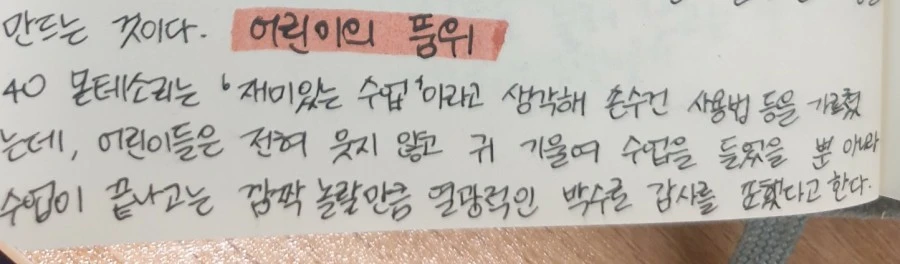 만드는 것이다. 어린이의 품위
40 몬테소리는 '재미있는 수업'이라고 생각해 손수건 사용법 등을 가르쳤
는데, 어린이들은 전혀 웃지 않고 귀 기울여 수업을 들었을 뿐 아니라
수업이 끝나고는 깜짝 놀랄만큼 열광적인 박수로 감사를 표했다고 한다.